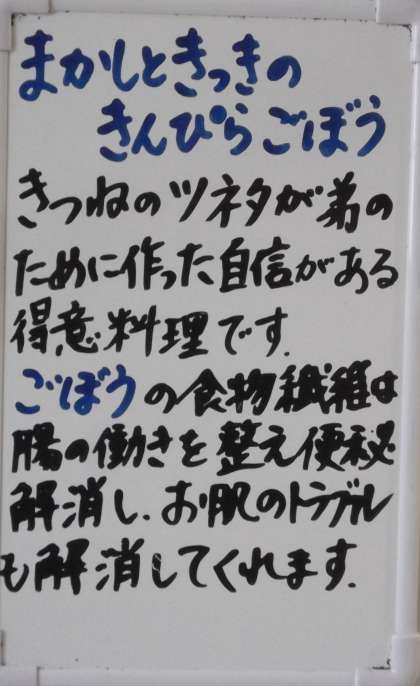 まかしときっきの
きんぴらごぼう
きつねのツネタが弟の
ために作った自信がある
得意料理です.
ごぼうの食物繊維は
腸の働きを整え便秘
解消し、お肌のトラブル
も解消してくれます.